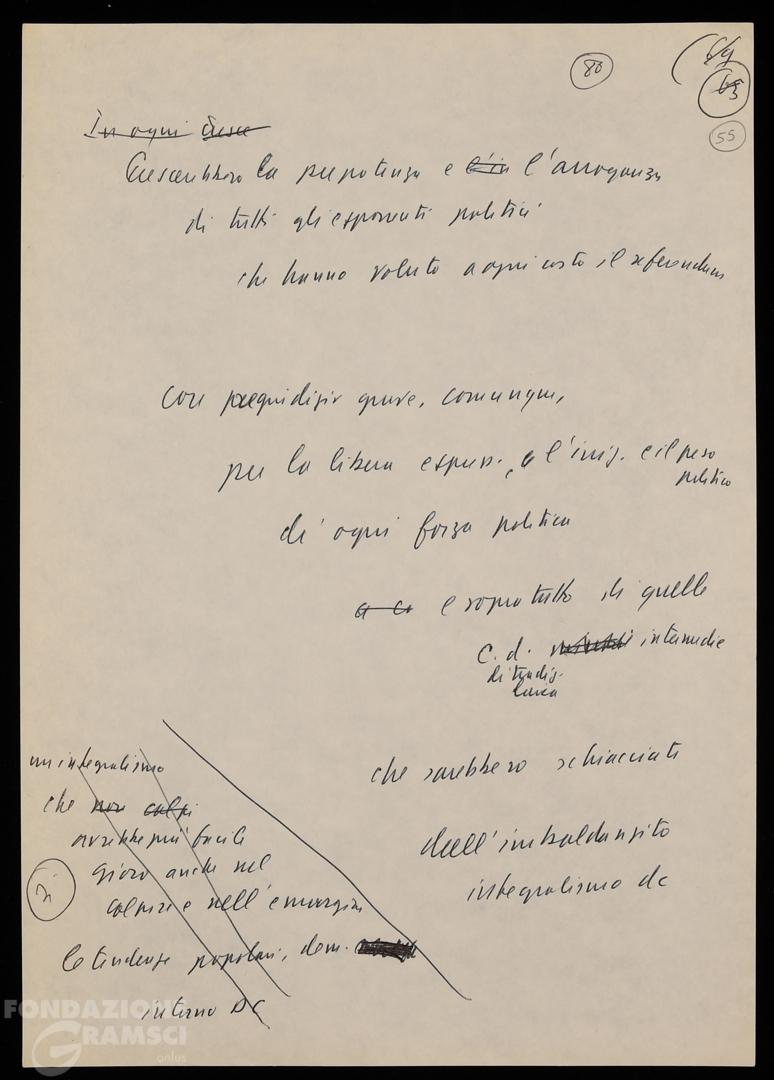 80
64
63
55
In ogni Cresce
Crescerebbero la prepotenza e l'in l'arroganza
di tutti gli esponenti politici
che hanno voluto a ogni costo il referendum
con pregiudizio grave, comunque,
per la libera espress. e l'iniz. e il peso
politico
di ogni forza politica
e soprattutto di quelle
c.d. intermedie
di tradiz.
laica
che sarebbero schiacciate
dall'imbaldanzito
integralismo dc
un integralismo
che non colpi
avrebbe più facile
gioco anche nel
colpire e nell'emargin
le tendenze popolari, dem.
interno DC
FONDAZIONE
GRAMSCI
onlus